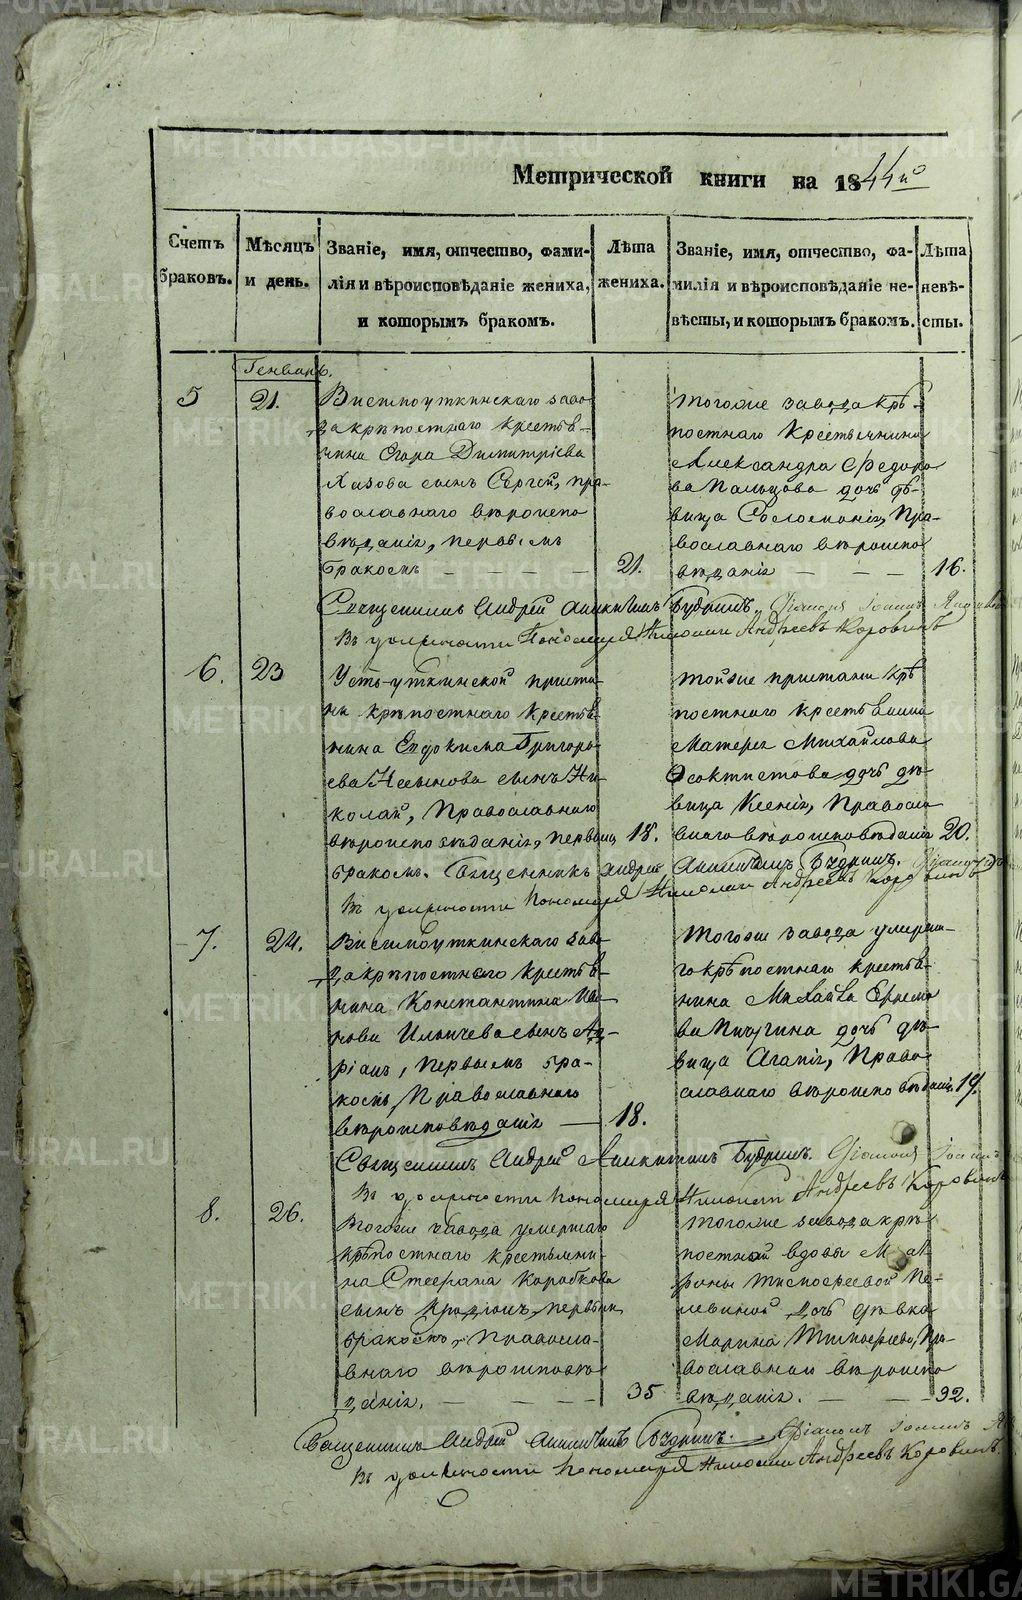 Метрической книги на 1844й
Счетъ браковъ.
Мѣсяцъ и день.
Званіе, имя, отчество, фами-
лія и вѣроисповѣданіе жениха,
и которымъ бракомъ.
Лѣта жениха.
Званіе, имя, отчество, фа-
милія и вѣроисповѣданіе не-
вѣсты, и которымъ бракомъ.
Лѣта невѣ-
сты.
Генварь.
5
21.
Висимоуткинскаго заво-
да крѣпостнаго крестья-
нина Егора Димитріева
сынъ Сергей, пра-
вославнаго вѣроиспо
вѣданія, первымъ
бракомъ
21.
того же завода крѣ-
постнаго крестьянина
Александра Федоро
ва Пальцова дочь дѣ-
вица Соломонія, Пра-
вославнаго вѣроиспо
вѣданія
16.
Священникъ Андрей Аникитинъ Будринъ. Діаконъ Іоаннъ
Въ должности Пономаря Андреевъ Коровинъ
6.
23
Усть-уткинской приста-
ни крѣпостнаго крестья-
нина Евдокима Григорь-
ева сынъ Ни-
колай, Православнаго
вѣроисповѣданія, первымъ
бракомъ.
18.
той же пристани крѣ
постнаго крестьянина
Михайлова
Ѳеоктистова дочь дѣ-
вица Ксенія, Правосла
внаго вѣроисповѣданія
20.
Священникъ Андрей Аникитинъ Будринъ. Діаконъ
Въ должности Пономаря Андреевъ Коровинъ
7.
24.
Висимоуткинскаго заво-
да крѣпостнаго крестья-
нина Константина Ива-
нова Ильичева сынъ Ад-
ріанъ, первымъ бра-
комъ, Православнаго
вѣроисповѣданія
18.
того же завода умерша-
го крѣпостнаго крестья-
нина Михайла Ефремо
ва дочь дѣ-
вица Агапія, Право
славнаго вѣроисповѣданія
19.
Священникъ Андрей Аникитинъ Будринъ. Діаконъ Іоаннъ
Въ должности Пономаря Андреевъ Коровинъ
8.
26.
Того же завода умершаго
крѣпостнаго крестьяни-
на Стефана Коробкова
сынъ Иродіонъ, первымъ
бракомъ, Правосла-
внаго вѣроисповѣ
данія.
35
того же завода крѣ
постной вдовы Мат
роны Тимофеевой Пе-
левиной дочь дѣвка
Марина Тимофеева, Пра-
вославнаго вѣроиспо
вѣданія.
32.
Священникъ Андрей Аникитинъ Будринъ. Діаконъ Іоаннъ
Въ должности Пономаря Андреевъ Коровинъ.
METRIKI.GASO-URAL.RU